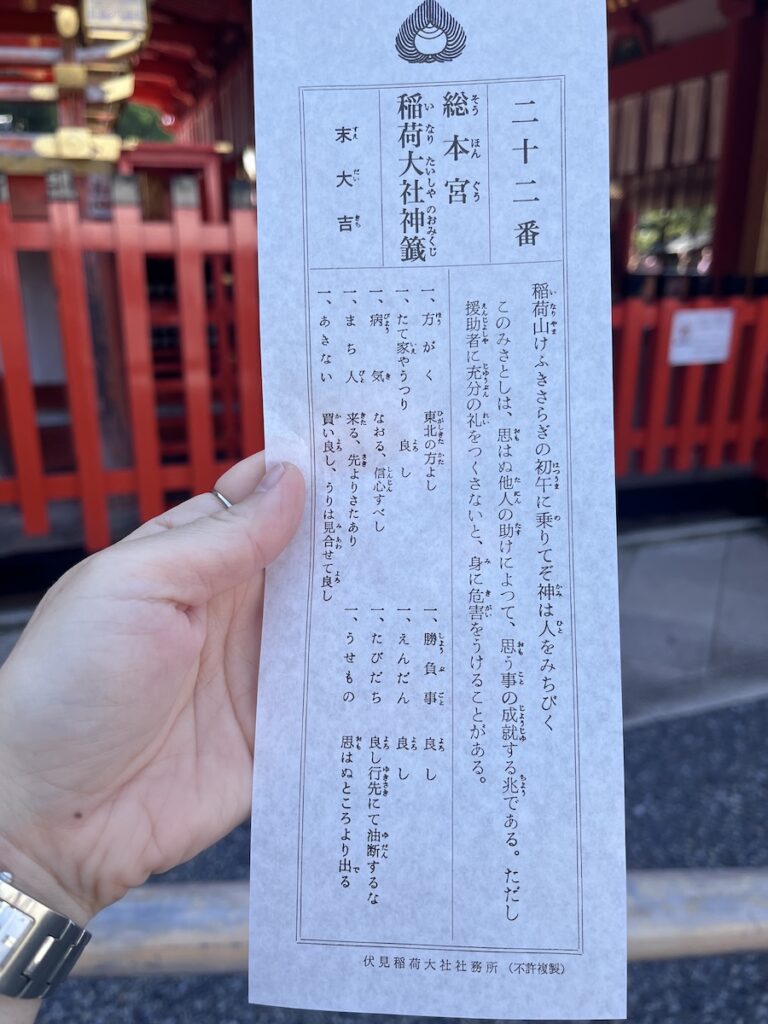 二十二番
総本宮
稲荷大社神籤
末大吉
稲荷山けふきさらぎの初午に乗りてぞ神は人をみちびく
このみさとしは、思はぬ他人の助けによつて、思う事の成就する兆である。ただし
援助者に充分の礼をつくさないと、身に危害をうけることがある。
一、方がく 東北の方よし
一、たて家やうつり 良し
一、病気 なおる、信心すべし
一、まち人 来る、先よりさたあり
一、あきない 買い良し、うりは見合せて良し
一、勝負事 良し
一、えんだん 良し
一、たびだち 良し行先にて油断するな
一、うせもの 思はぬところより出る
伏見稲荷大社社務所（不許複製）